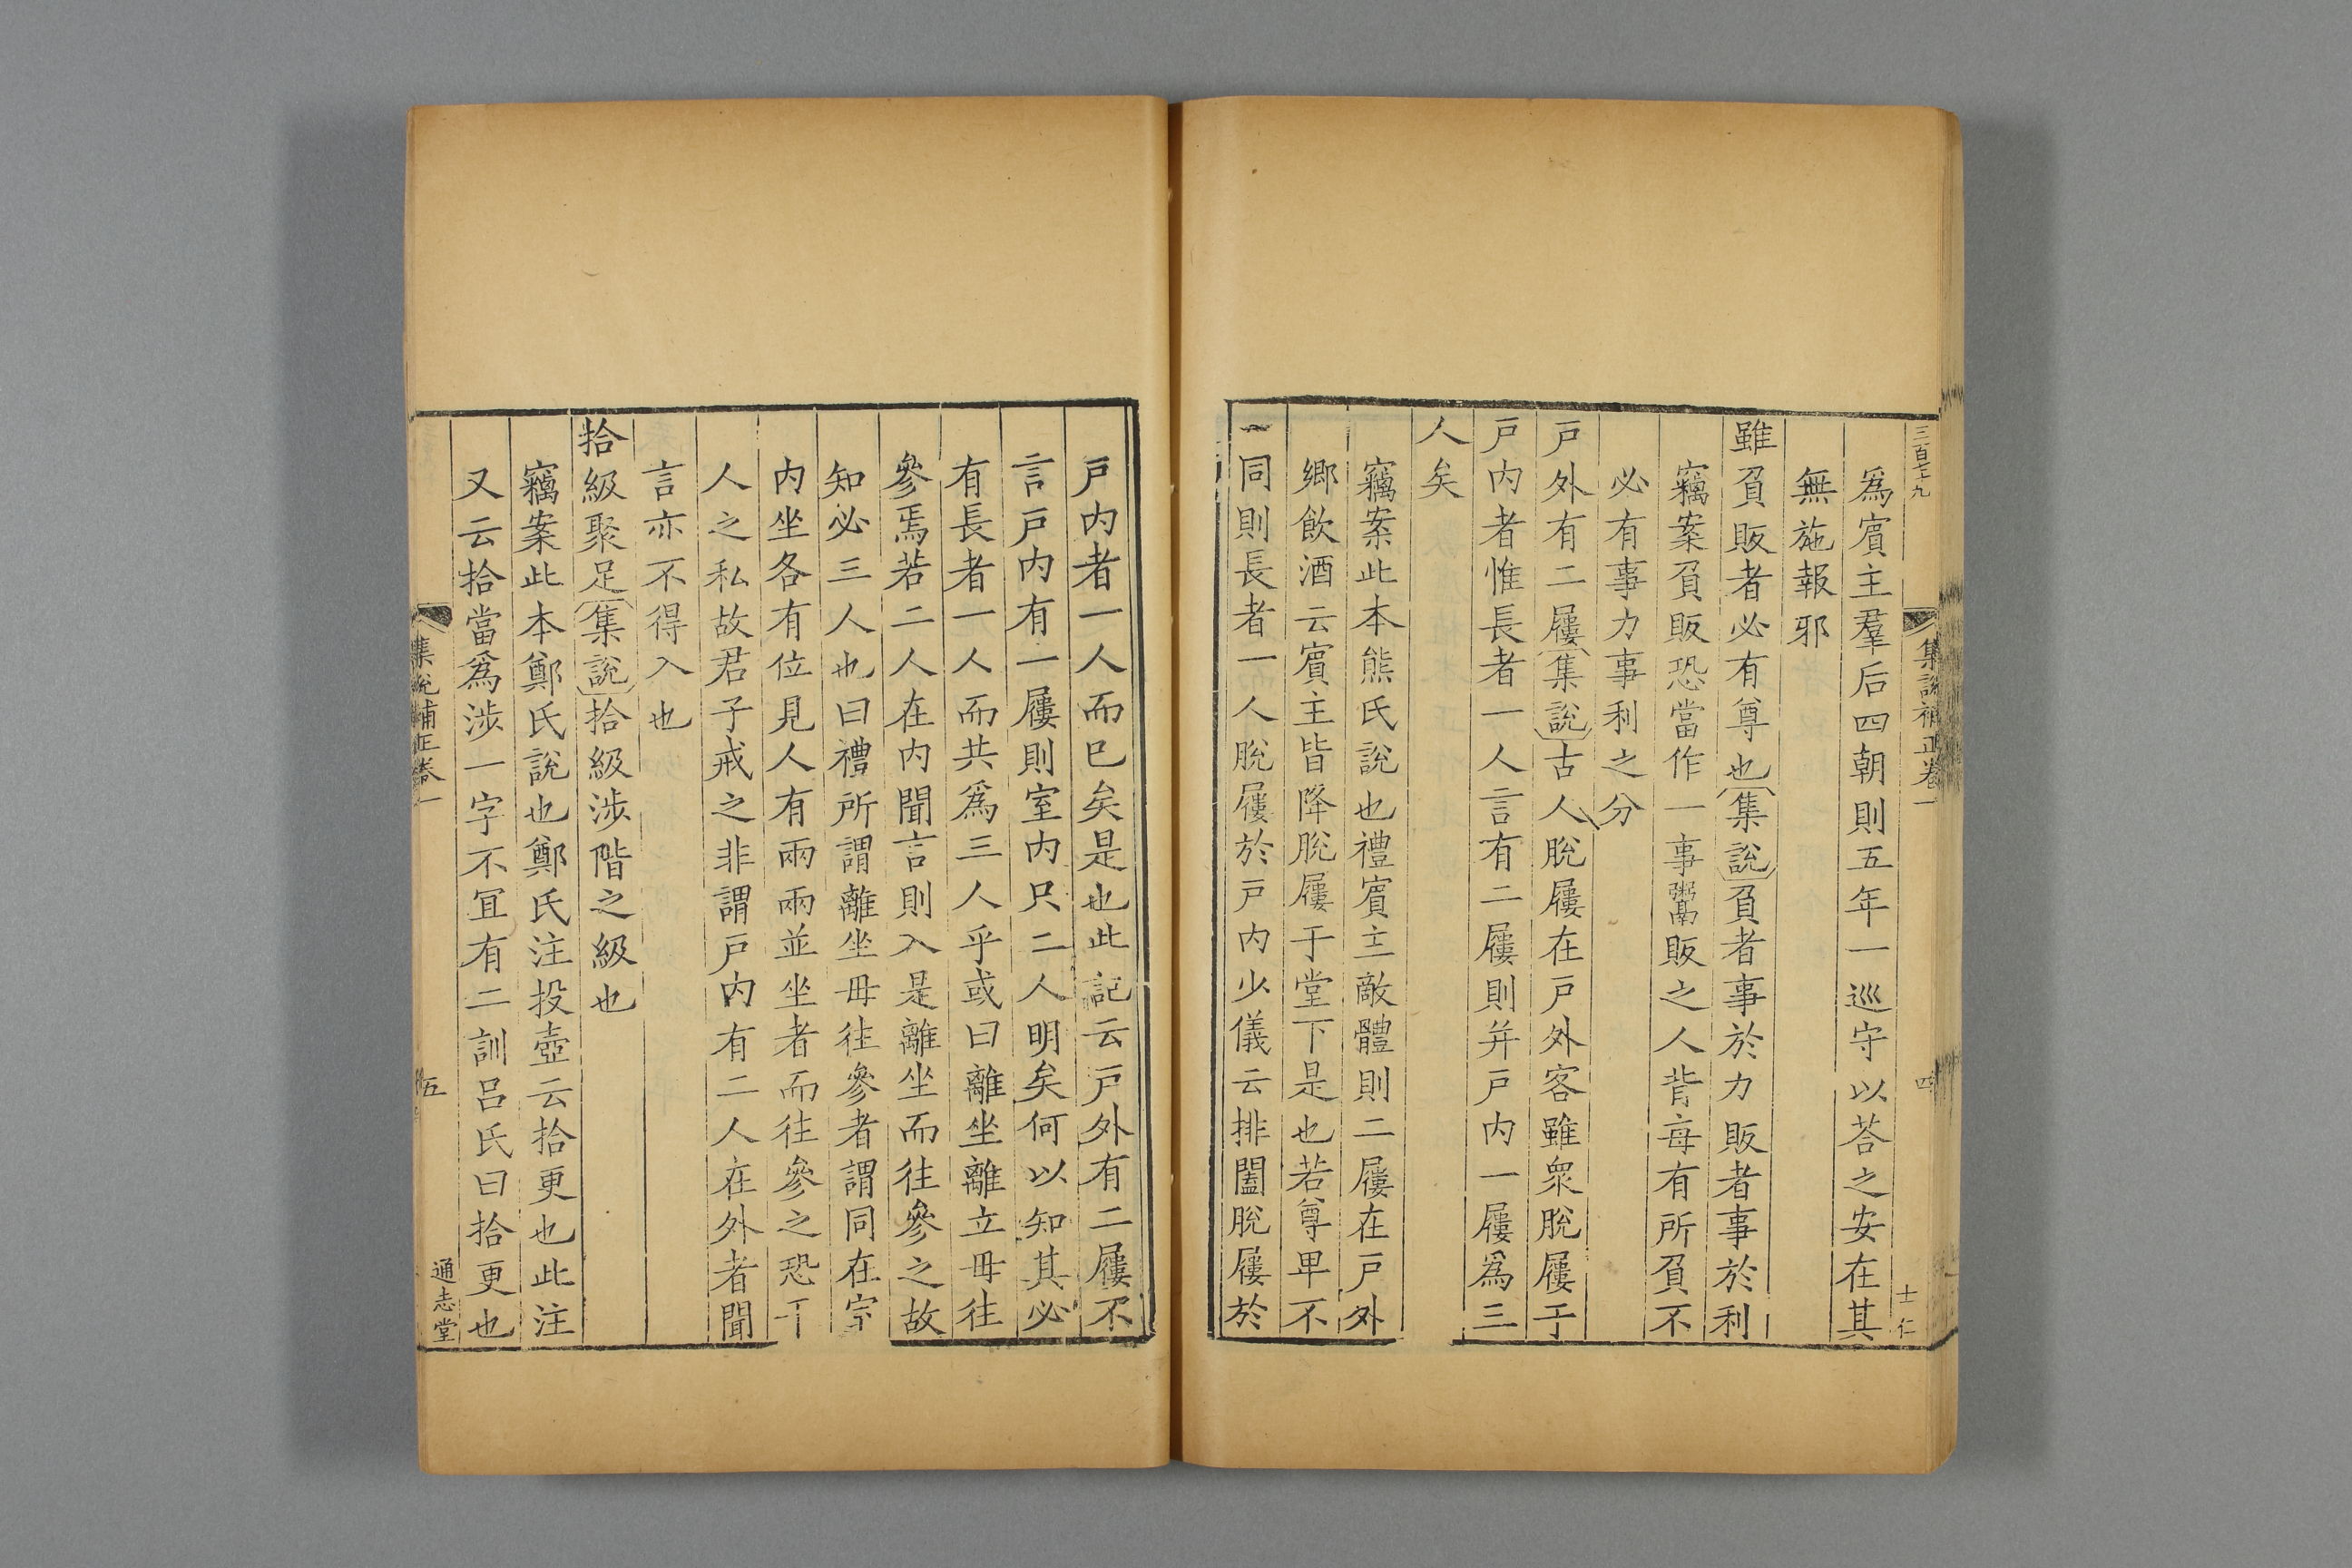 三百七十九
集說補正卷一
四
士仁
爲賔主羣后四朝則五年一巡守以荅之安在其
無施報邪
雖負販者必有尊也集說負者事於力販者事於利
竊案負販恐當作一事鬻販之人背每有所負不
必有事力事利之分
戸外有二屨集說古人脫屨在戸外客雖衆脫屨于
戸内者惟長者一人言有二屨則并戸内一屨爲三
人矣
竊案此本熊氏說也禮賔主敵體則二屨在戸外
鄉飲酒云賔主皆降脫屨于堂下是也若尊卑不
一同則長者一人脫屨於戸内少儀云排闔脫屨於
戸内者一人而巳矣是也此記云戸外有二屨不
言戸内有一屨則室内只二人明矣何以知其必
有長者一人而共爲三人乎或曰離坐離立毋往
參焉若二人在内聞言則入是離坐而往參之故
知必三人也曰禮所謂離坐毋往參者謂同在
内坐各有位見人有兩兩並坐者而往參之恐
人之私故君子戒之非謂戸内有二人在外者聞
言亦不得入也
拾級聚足集說拾級涉階之級也
竊案此本鄭氏說也鄭氏注投壺云拾更也此注
又云拾當爲涉一字不冝有二訓呂氏曰拾更也
集說補正卷一
五
通志堂